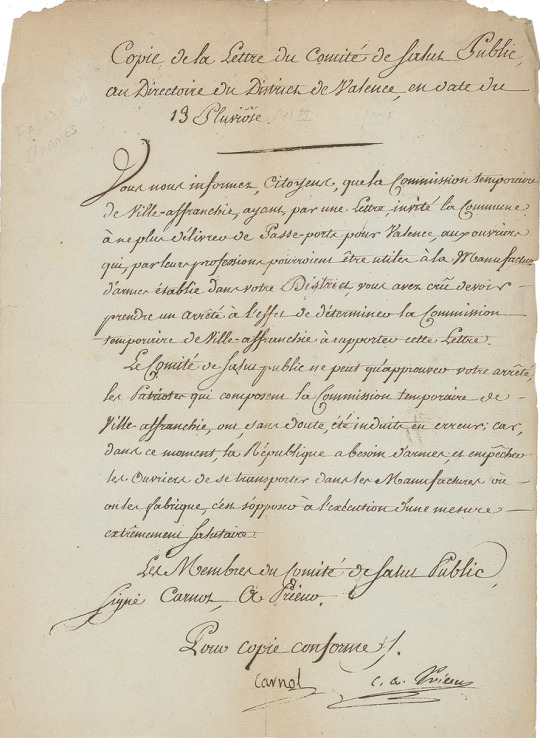 Copie de la Lettre du Comité de Salut Public,
au Directoire du District de Valence, en date du
13 Pluviôse.
Vous nous informez, Citoyens, que la Commission temporaire
de Ville-affranchie, ayant, par une Lettre, invité la Commune
à ne plus délivrer de Passe-ports pour Valence, aux ouvriers
qui, par leurs professions pourroient être utiles à la Manufacture
d'armes établie dans votre District, vous avez crû devoir
prendre un arrêté à l'effet de déterminer la Commission
temporaire de Ville-affranchie à rapporter cette Lettre.
Le Comité de Salut public ne peut qu'approuver votre arrêté,
les Patriotes qui composent la Commission temporaire de
Ville-affranchie, ont, sans doute, été induits en erreur; car,
dans ce moment, la République a besoin d'armes, et empêcher
les Ouvriers de se transporter dans les Manufactures où
on les fabrique, c'est s'opposer à l'exécution d'une mesure
extrêmement salutaire.
Les Membres du Comité de Salut Public,
Signé Carnot, C A Prieur.
Pour copie conforme
Carnot C. A. Prieur